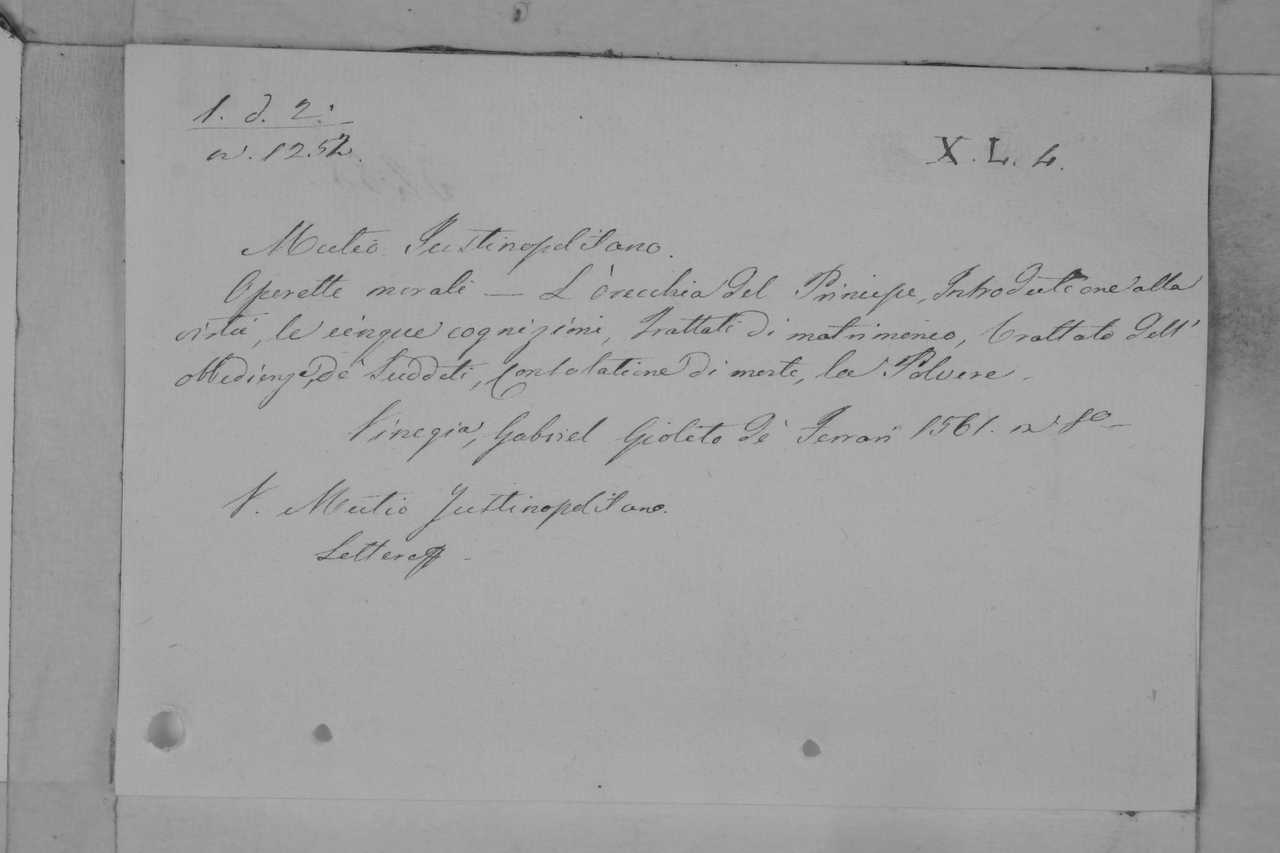 1. d. 2.
n. 1252.
X. L. 4.
Mutio Justinopolitano.
Operette morali — L'orecchia del Principe, Introdutione alla
virtù, le cinque cognizioni, trattato di matrimonio, trattato dell'
obedienza de' sudditi, Consolatione di morte, la Polvere.
Vinegia, Gabriel Giolito de' Ferrari 1561. in 8o
V. Mutio Justinopolitano.
Lettere